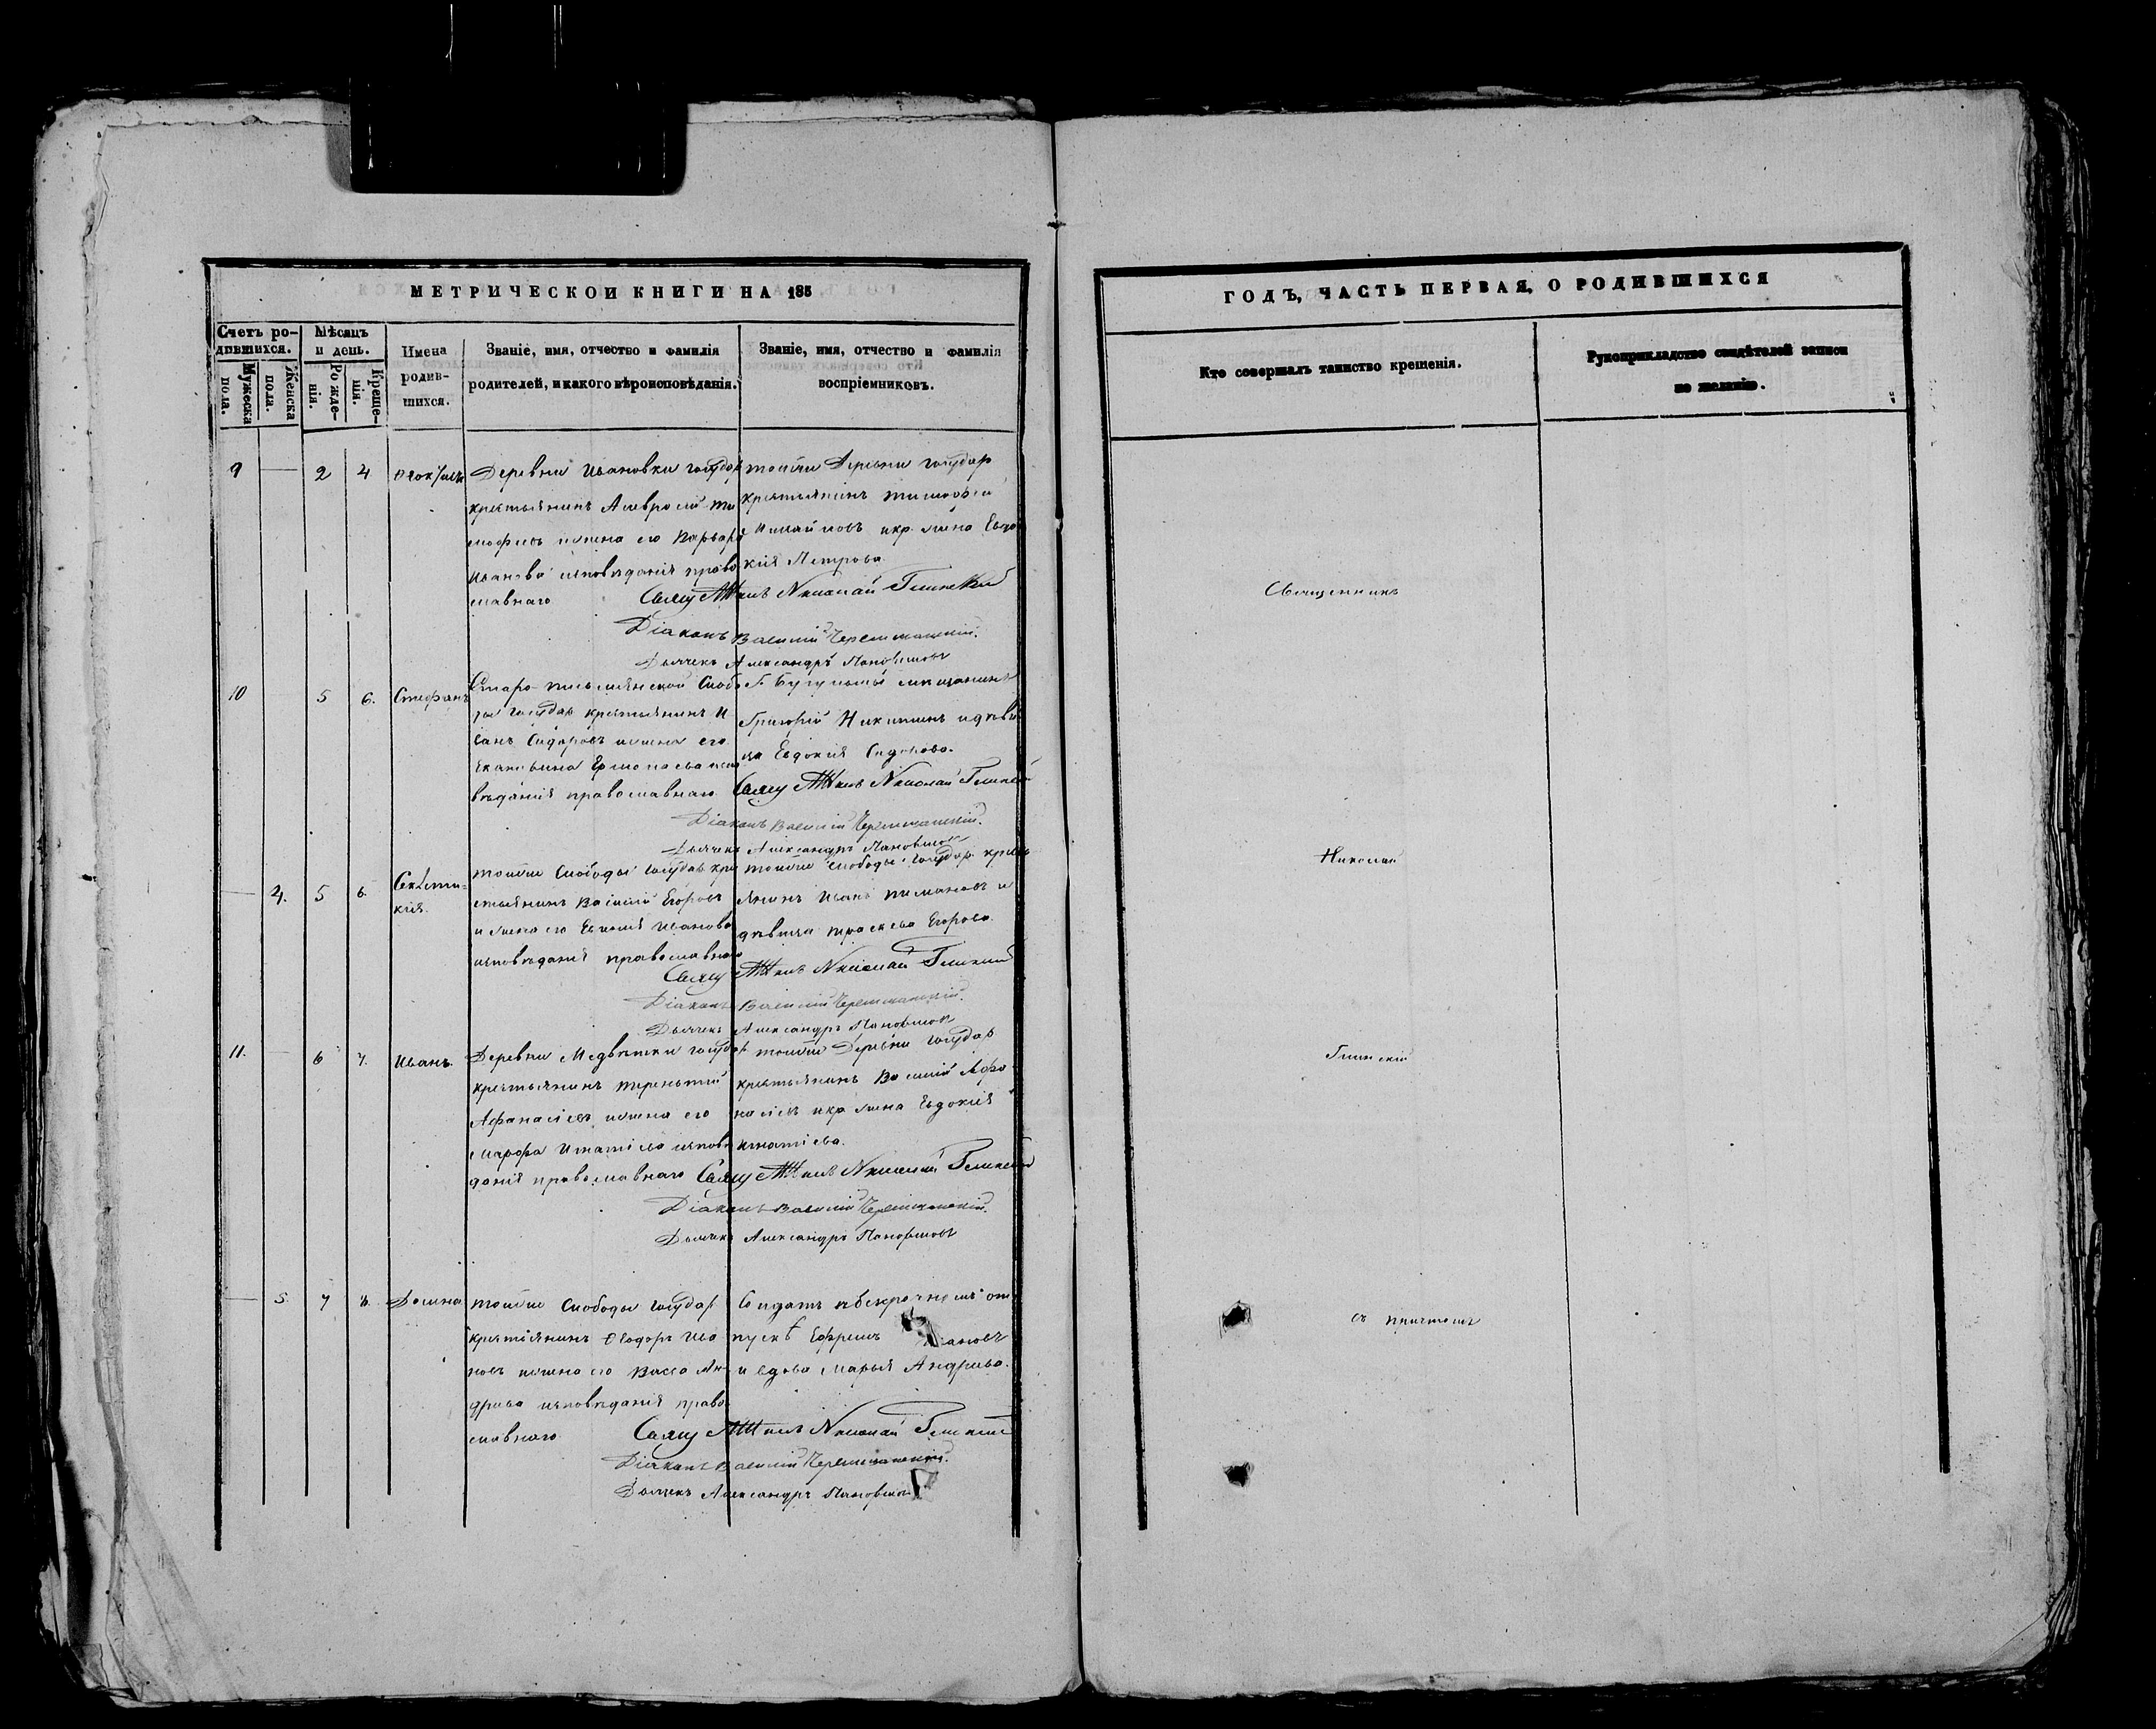 МЕТРИЧЕСКОЙ КНИГИ НА 185
Счетъ ро-
дившихся.
Мужеска
пола.
Женска
пола.
Мѣсяцъ
и день.
Рожде-
нія.
Креще-
нія.
Имена
родив-
шихся.
Званіе, имя, отчество и фамилія
родителей, и какого вѣроисповѣданія.
Званіе, имя, отчество и фамилія
воспріемниковъ.
9 — 2 4
Деревни Ивановки государ
крестьянинъ Амвросій Ти
мофѣевъ и жена его Варвара
Иванова исповѣданія право
славнаго
тойже деревни государ
крестьянинъ Тимофей
и кр. жена Евдо
кія Петрова
Николай Глинскій
Діаконъ Василій Черемшанскій.
Дьячекъ Александръ
10 5 6. Стефанъ
Старо-письмянской Слобо
ды государ крестьянинъ И
ванъ Сидоровъ и жена его
Екатерина Ермолаева испо
вѣданія православнаго
Г. Бугульмы мѣщанинъ
Григорій Никитинъ и дѣви
ца Евдокія Сидорова.
Николай Глинскій
Діаконъ Василій Черемшанскій.
Дьячекъ Александръ
— 4. 5 6.
тойже Слободы государ кре
стьянинъ Василій Егоровъ
и жена его Иванова
исповѣданія православнаго
тойже слободы государ кресть
янинъ Иванъ и
дѣвица Праскева Егорова.
Николай Глинскій
Діаконъ Василій Черемшанскій.
Дьячекъ Александръ
11. — 6 7. Иванъ.
Деревни Медвѣтки государ
крестьянинъ Терентій
Афанасіевъ и жена его
Марфа Игнатіева исповѣ
данія православнаго
тойже Деревни государ
крестьянинъ Василій Афа
насіевъ и кр. жена Евдокія
Игнатіева.
Николай Глинскій
Діаконъ Василій Черемшанскій.
Дьячекъ Александръ
— 5. 7 8. Домна
тойже Слободы государ
крестіянинъ Ѳеодоръ Ива
новъ и жена его Васса Ан
дреева исповѣданія право
славнаго
Солдатъ в безсрочнемъ от
пускѣ Ефремъ
и вдова Марья Андреева.
Николай Глинскій
Діаконъ Василій Черемшанскій.
Дьячекъ Александръ
ГОДЪ, ЧАСТЬ ПЕРВАЯ, О РОДИВШИХСЯ
Кто совершалъ таинство крещенія.
Рукоприкладство свидѣтелей записи
по желанію.
Священникъ
Николай
Глинскій
съ причтомъ